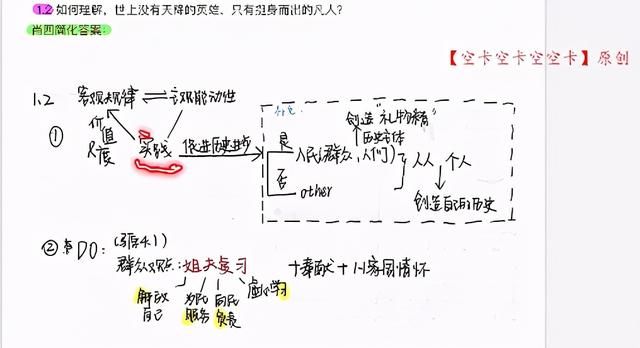 1.2 如何理解，世上没有天降的英雄、只有挺身而出的凡人？
肖四简化答案：
【空卡空卡空空卡】原创
1.2 客观规律 ⇌ 主观能动性
① 价值尺度
实践 促进历史进步
创造“礼物精”
历史主体
是 人民(群众, 人们)
人人 个人
否 other
创造自己的历史
② 需DO: (强4.1)
群众观点: 姐夫复习 +奉献+家国情怀
解放自己 为民服务 向民负责 虚心学习